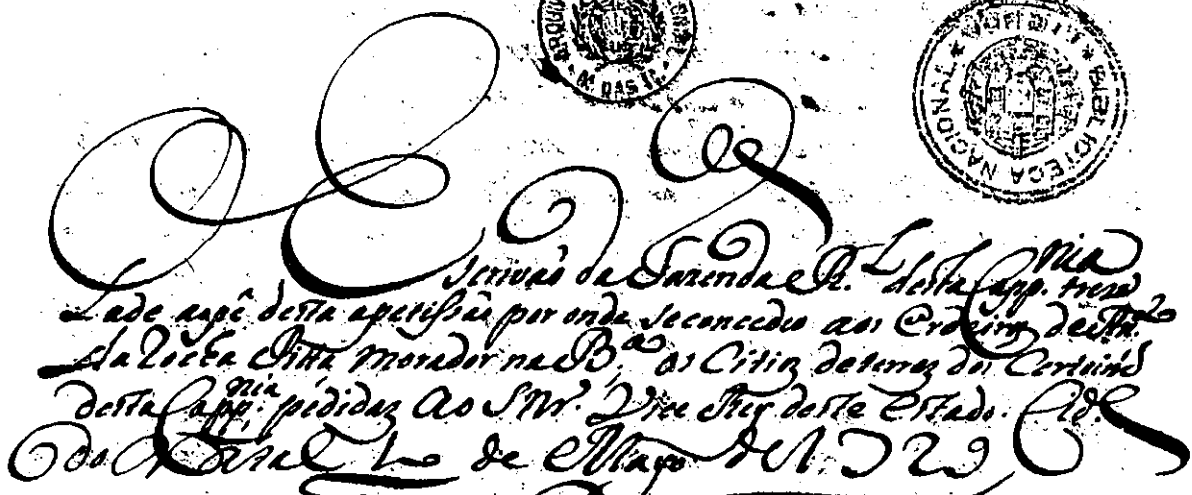 NACIONAL
Mª DAS
BIBLIOTECA NACIONAL
O Escrivaõ da Fazenda R.L desta Capp.nia
Lade ao pê desta apetissaõ por onde se concedeo aos Erdeiros de An.to
da Rocha Pitta morador na B.ª os Citios de terras dos
desta Capp.nia pedidas Ao Snr. Vice Rey deste Estado. Cid.e
do de Mayo de 1729